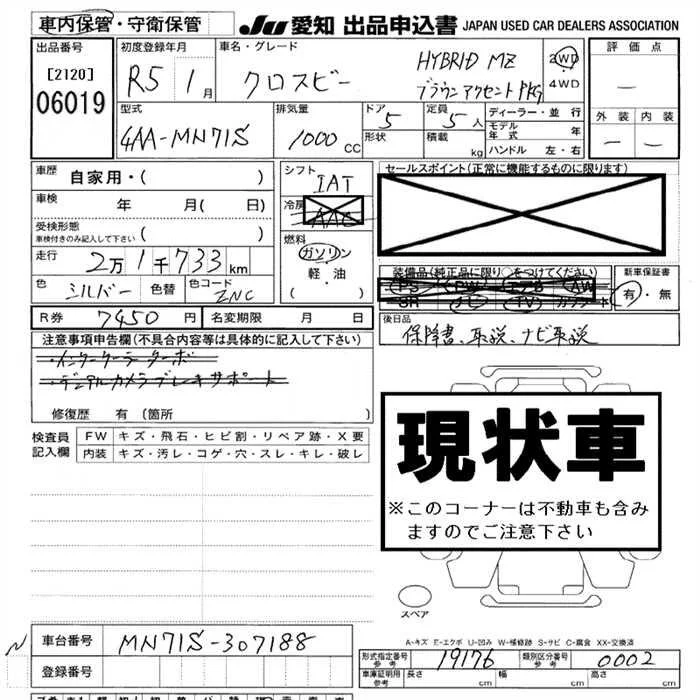 車内保管・守衛保管
JU 愛知 出品申込書 JAPAN USED CAR DEALERS ASSOCIATION
出品番号
[2120]
06019
初度登録年月
R5 1月
車名・グレード
クロスビー
HYBRID MZ
ブラウンアクセントPKG
2WD
4WD
評価点
―
外装 内装
― ―
型式
4AA-MN71S
排気量
1000 CC
ドア
5
形状
定員
5人
積載
kg
ディーラー・並行
モデル年式 年
ハンドル 左・右
車歴
自家用・( )
車検
年 月( 日)
受検形態
車検付きのみ記入して下さい ( )
走行
2万1千733km
色
シルバー 色替
色コード
ZNC
シフト
IAT
冷房
AAC
燃料
ガソリン
軽・油
( )
セールスポイント(正常に機能するものに限ります)
装備品(純正品に限り○をつけてください)
PS PW エアB AW
SR ナビ TV カワシート
新車保証書
有・無
R券 7450 円
名変期限 月 日
後日品
保障書、取説、ナビ取説
注意事項申告欄(不具合内容等は具体的に記入して下さい)
・インタークーラーターボー
・デュアルカメラブレーキサポート
修復歴 有 (箇所 )
検査員記入欄
FW キズ・飛石・ヒビ割・リペア跡・X要
内装 キズ・汚レ・コゲ・穴・スレ・キレ・破レ
現状車
※このコーナーは不動車も含みますのでご注意下さい
スペア
A-キズ E-エクボ U-凹み W-補修跡 S-サビ C-腐食 XX-交換済
N
車台番号 MN71S-307188
登録番号
形式指定番号
参考
19176
類別区分番号
参考
0002
車庫証明用
参考
長さ cm
幅 cm
高さ cm